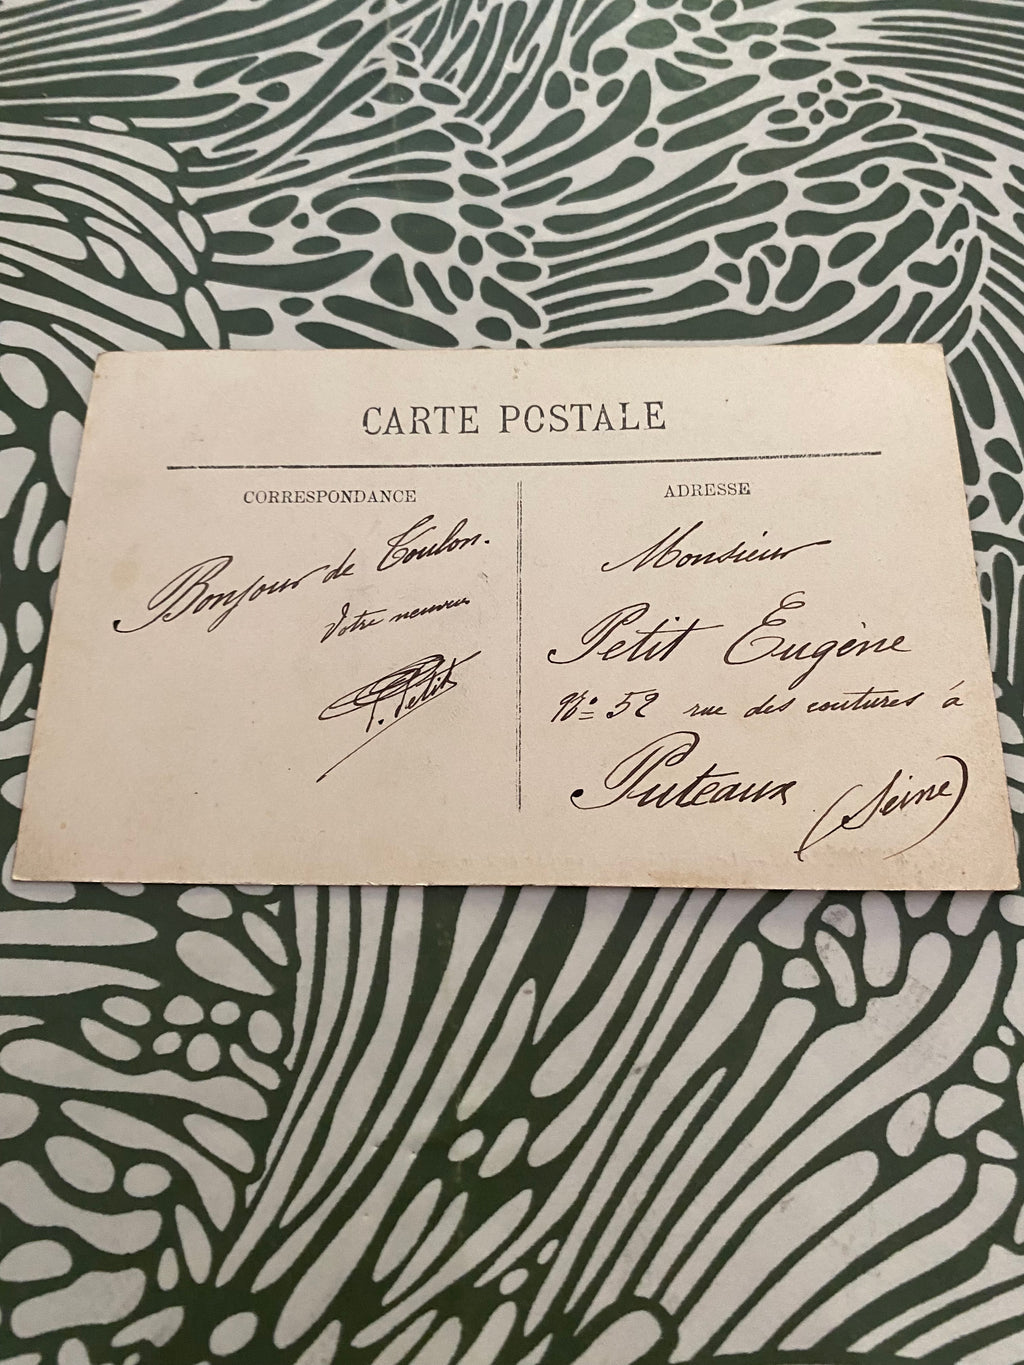 CARTE POSTALE
CORRESPONDANCE
Bonjour de Toulon.
Votre neuveu
P. Petit
ADRESSE
Monsieur
Petit Eugène
No 52 rue des coutures à
Puteaux (Seine)